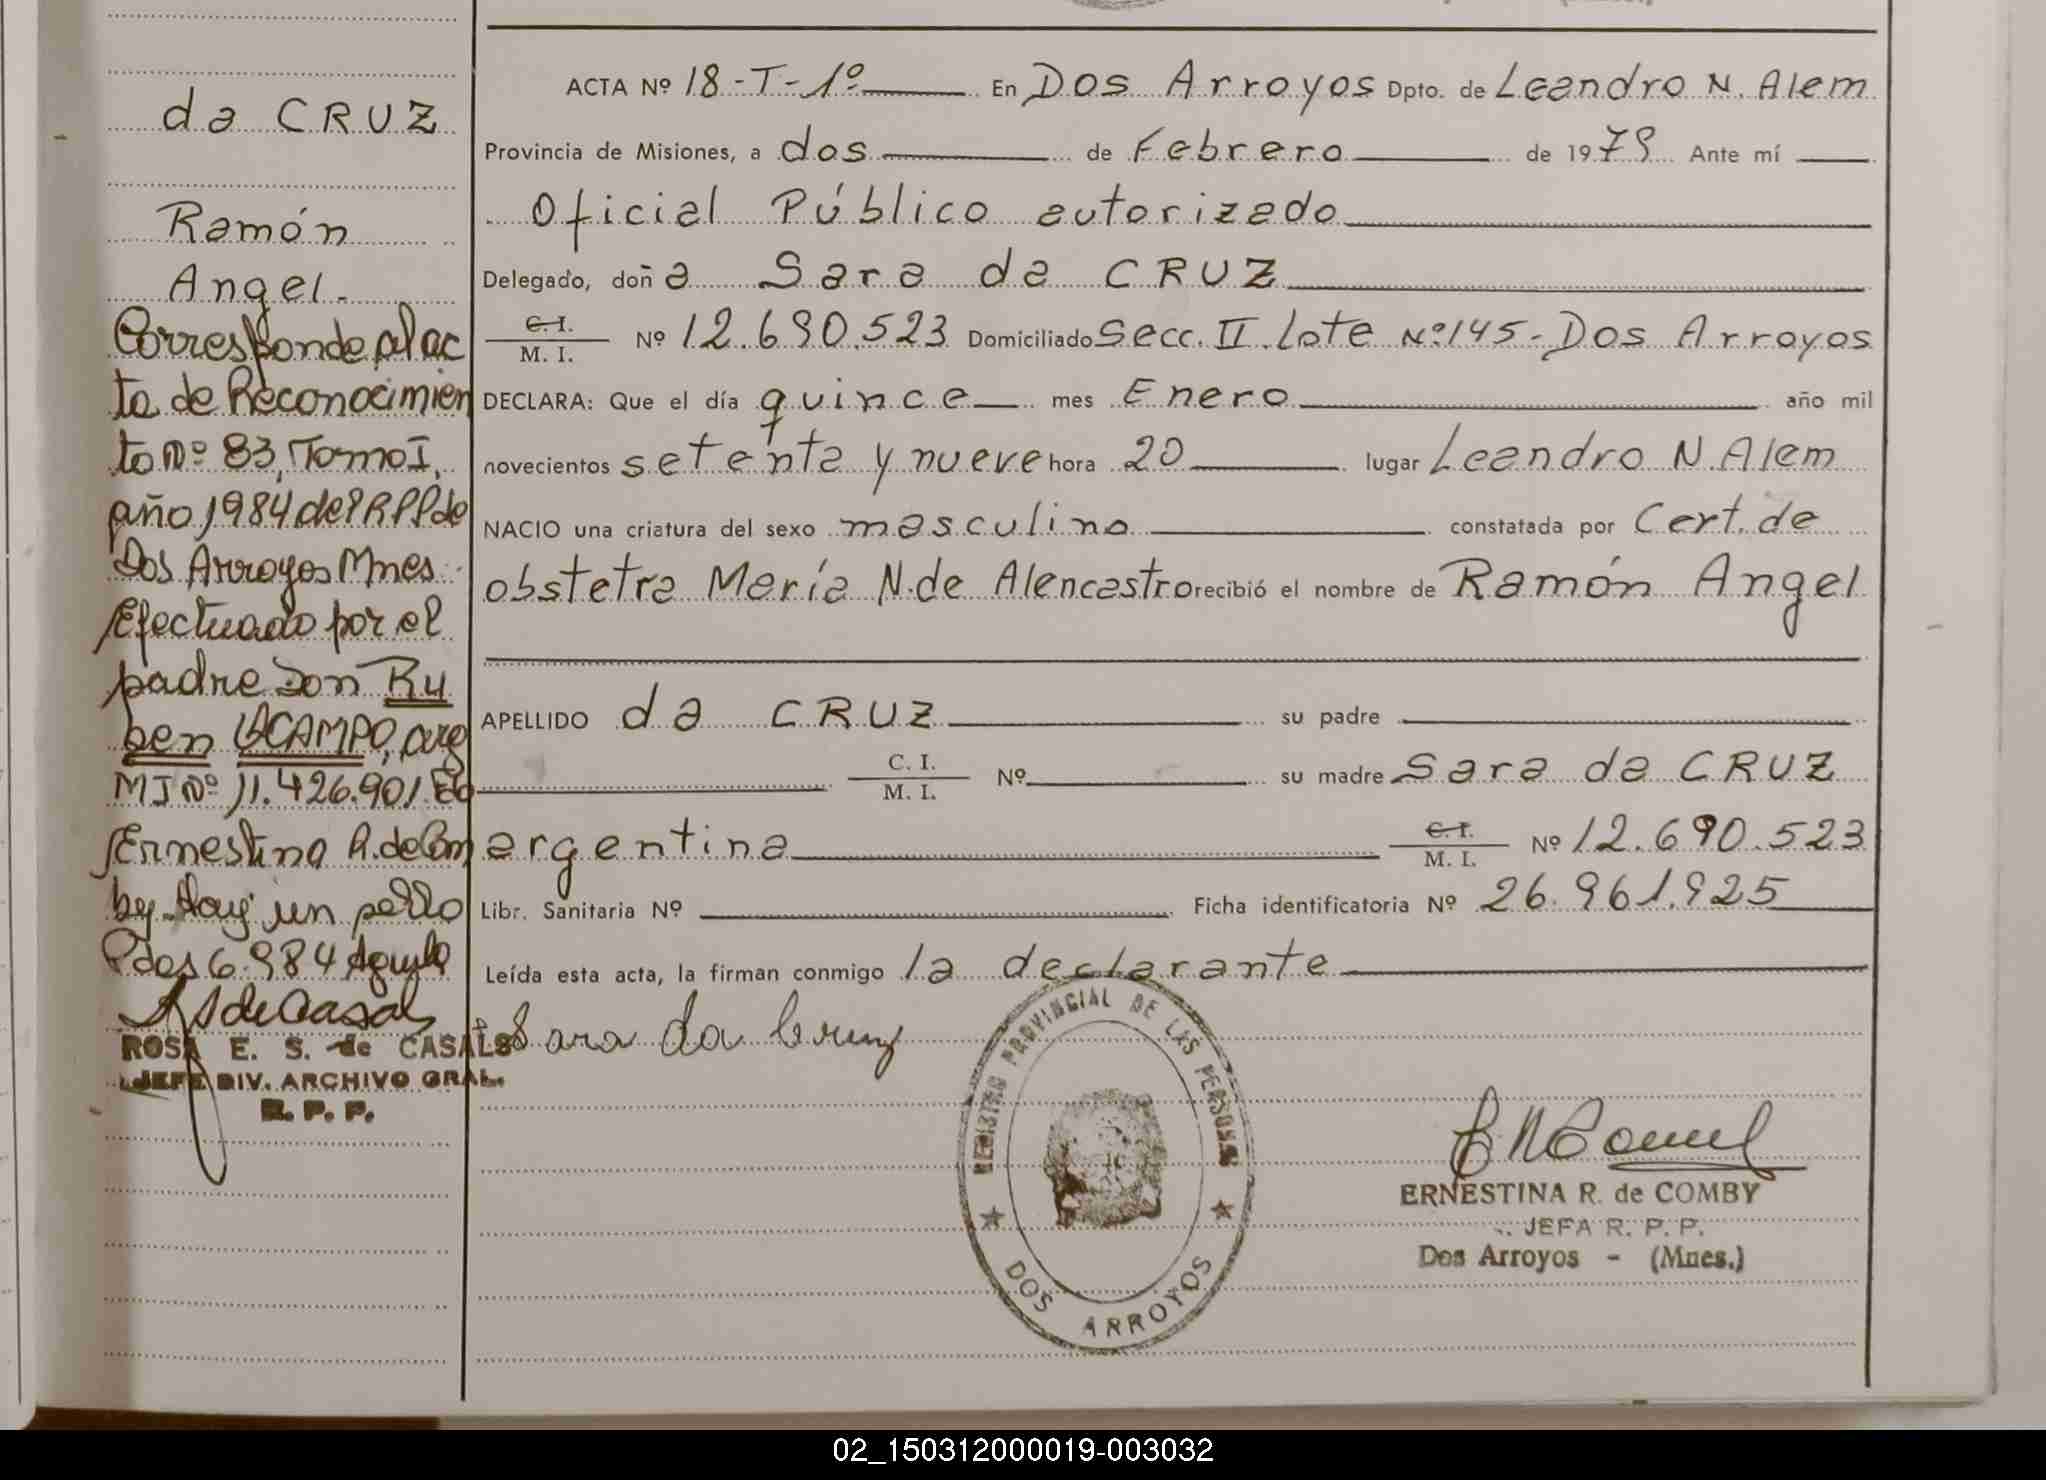 da CRUZ
Ramón
Angel.-
Corresponde al ac
ta de Reconocimien
to Nº 83, Tomo I,
año 1984 del RPP de
Dos Arroyos Mnes.
Efectuado por el
padre Don Ru
ben OCAMPO, arg
MI Nº 11.426.901.
Ernestina R. de Com
by.
ROSA E. S. de CASALS
JEFE DIV. ARCHIVO GRAL.
R. P. P.
ACTA Nº 18-T-1º En Dos Arroyos Dpto. de Leandro N. Alem
Provincia de Misiones, a dos de Febrero de 1979 Ante mí
Oficial Público autorizado
Delegado, doña Sara da CRUZ
C. I.
M. I. Nº 12.690.523 Domiciliado Secc. II. Lote Nº 145-Dos Arroyos
DECLARA: Que el día quince mes Enero año mil
novecientos setenta y nueve hora 20 lugar Leandro N. Alem
NACIO una criatura del sexo masculino constatada por Cert. de
obstetra María N. de Alencastro recibió el nombre de Ramón Angel
APELLIDO da CRUZ su padre
C. I.
M. I. Nº su madre Sara da CRUZ
argentina C. I.
M. I. Nº 12.690.523
Libr. Sanitaria Nº Ficha identificatoria Nº 26.961.925
Leída esta acta, la firman conmigo la declarante
Sara da Cruz
REGISTRO PROVINCIAL DE LAS PERSONAS
DOS ARROYOS
ERNESTINA R. de COMBY
JEFA R. P. P.
Dos Arroyos - (Mnes.)
02_150312000019-003032